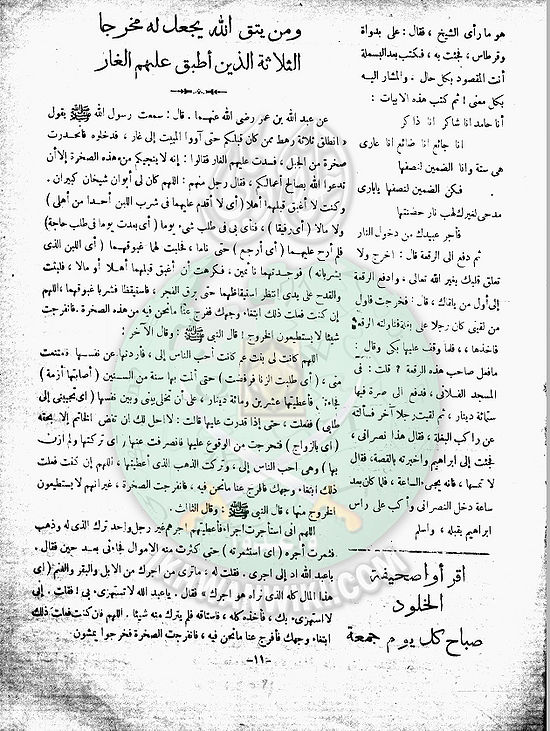 هو ما رأى الشيخ ، فقال : على بدواة
وقرطاس ، فجئت به ، فكتب بعد البسملة
أنت المقصود بكل حال . والمشار اليه
بكل معنى ! ثم كتب هذه الابيات :
أنا حامد انا شاكر انا ذاكر
انا جائع انا ضائع انا عارى
هى ستة وانا الضمين لنصفها
فكن الضمين لنصفها يابارى
مدحى لغيرك لهب نار خضتها
فأجر عبيدك من دخول النار
ثم دفع الى الرقعة قال : اخرج ولا
تعلق قلبك بغير الله تعالى ، وادفع الرقعة
إلى أول من يلقاك ، قال : فخرجت فأول
من لقينى كان رجلا على بغلة فناولته الرقعة
فأخذها ، ، فلما وقف عليها بكى وقال :
مافعل صاحب هذه الرقعة ؟ قلت : فى
المسجد الفلانى ، فدفع الى صرة فيها
ستمائة دينار ، ثم لقيت رجلا آخر فسألته
عن راكب البغلة ، فقال هذا نصرانى ،
فجئت إلى ابراهيم واخبرته بالقصة ، فقال
لا تمسها ، فانه يجىء الساعة ، فلما كان بعد
ساعة دخل النصرانى وأكب على رأس
ابراهيم يقبله ، واسلم
اقرأوا صحيفة
الخلود
صباح كل يوم جمعة
ومن يتق الله يجعل له مخرجا
الثلاثة الذين أطبق عليهم الغار
عن عبد الله بن عمر رضى الله عنهما . قال : سمعت رسول الله ﷺ يقول
« انطلق ثلاثة رهط ممن كان قبلكم حتى آووا المبيت إلى غار ، فدخلوه فانحدرت
صخرة من الجبل ، فسدت عليهم الغار فقالوا : إنه لا ينجيكم من هذه الصخرة إلا أن
تدعوا الله بصالح أعمالكم ، فقال رجل منهم : اللهم كان لى أبوان شيخان كبيران .
وكنت لا أغبق قبلهما أهلا ( أى لا أقدم عليهما فى شرب اللبن أحدا من أهلى )
ولا مالا ( أى رقيقا ) ، فنأى بى فى طلب شىء يوما ( أى بعدت يوما فى طلب حاجة )
فلم أرح عليهما ( أى أرجع ) حتى ناما ، فحلبت لهما غبوقهما ( أى اللبن الذى
يشربانه ) فوجدتهما نائمين ، فكرهت أن أغبق قبلهما أهلا أو مالا ، فلبثت
والقدح على يدى انتظر استيقاظهما حتى برق الفجر ، فاستيقظا فشربا غبوقهما ، اللهم
إن كنت فعلت ذلك ابتغاء وجهك ففرج عنا مانحن فيه من هذه الصخرة . فانفرجت
شيئا لا يستطيعون الخروج ! قال النبى ﷺ : وقال الآخر :
اللهم كانت لى بنت عم كانت أحب الناس إلى ، فاردتها عن نفسها فامتنعت
منى ، ( أى طلبت الزنا فرفضت ) حتى ألمت بها سنة من السنين ( أصابتها أزمة )
فجاءتنى فأعطيتها عشرين ومائة دينار ، على أن تخلى بينى وبين نفسها ( أى تجيبنى إلى
طلبى ) ففعلت ، حتى إذا قدرت عليها قالت : لا احل لك ان تفض الخاتم إلا بحقه
( أى بالزواج ) فتحرجت من الوقوع عليها فانصرفت عنها ( اى تركتها ولم ازن
بها ) وهى احب الناس إلى ، وتركت الذهب الذى أعطيتها ، اللهم إن كنت فعلت
ذلك ابتغاء وجهك فأفرج عنا مانحن فيه ، فانفرجت الصخرة ، غير انهم لا يستطيعون
الخروج منها ، قال النبى ﷺ : وقال الثالث .
اللهم انى استأجرت اجراء فأعطيتهم اجرهم غير رجل واحد ترك الذى له وذهب
فثمرت أجره ( أى استثمرته ) حتى كثرت منه الاموال فجاءنى بعد حين فقال .
ياعبد الله اد إلى اجرى . فقلت له ، ماترى من اجرك من الابل والبقر والغنم ( اى
هذا المال كله الذى تراه هو اجرك » فقال . ياعبد الله لا تستهزىء بى ! فقلت . إنى
لا استهزىء بك ، فأخذه كله ، فاستاقه فلم يترك منه شيئا . اللهم فان كنت فعلت ذلك
ابتغاء وجهك فأفرج عنا مانحن فيه ، فانفرجت الصخرة فخرجوا يمشون .
- ١١ -